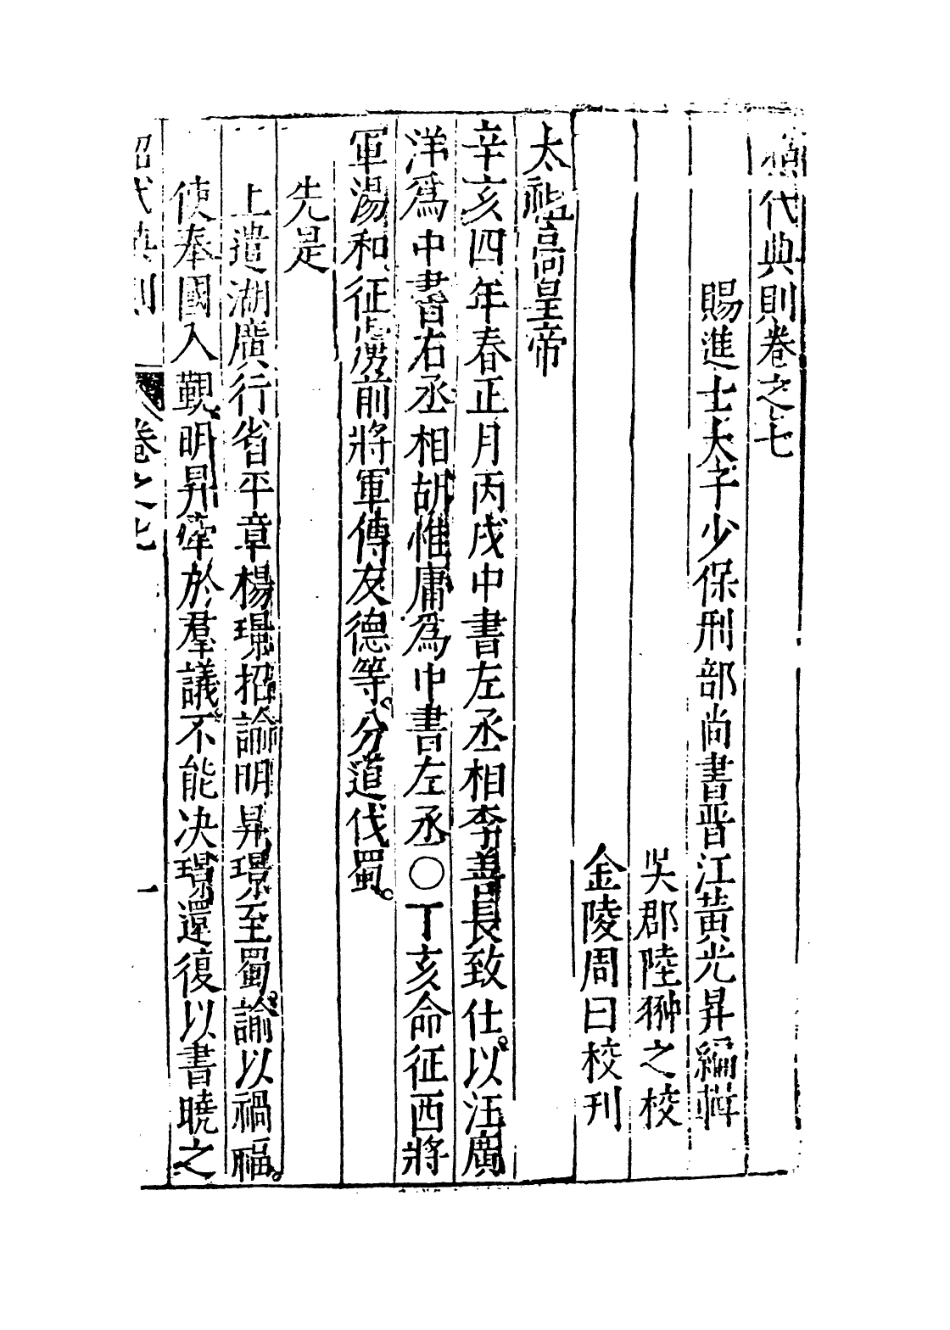 昭代典則卷之七
賜進士太子少保刑部尚書晋江黃光昇編輯
吳郡陸翀之校
金陵周曰校刊
太祖高皇帝
辛亥四年春正月丙戌中書左丞相李善長致仕。以汪廣
洋爲中書右丞相胡惟庸爲中書左丞○丁亥命征西將
軍湯和征虜前將軍傅友德等。分道伐蜀。
先是
上遣湖廣行省平章楊璟招諭明昇璟至蜀。諭以禍福。
使奉國入覲。明昇牽於羣議。不能决璟還復以書曉之
昭代典則 卷之七 一